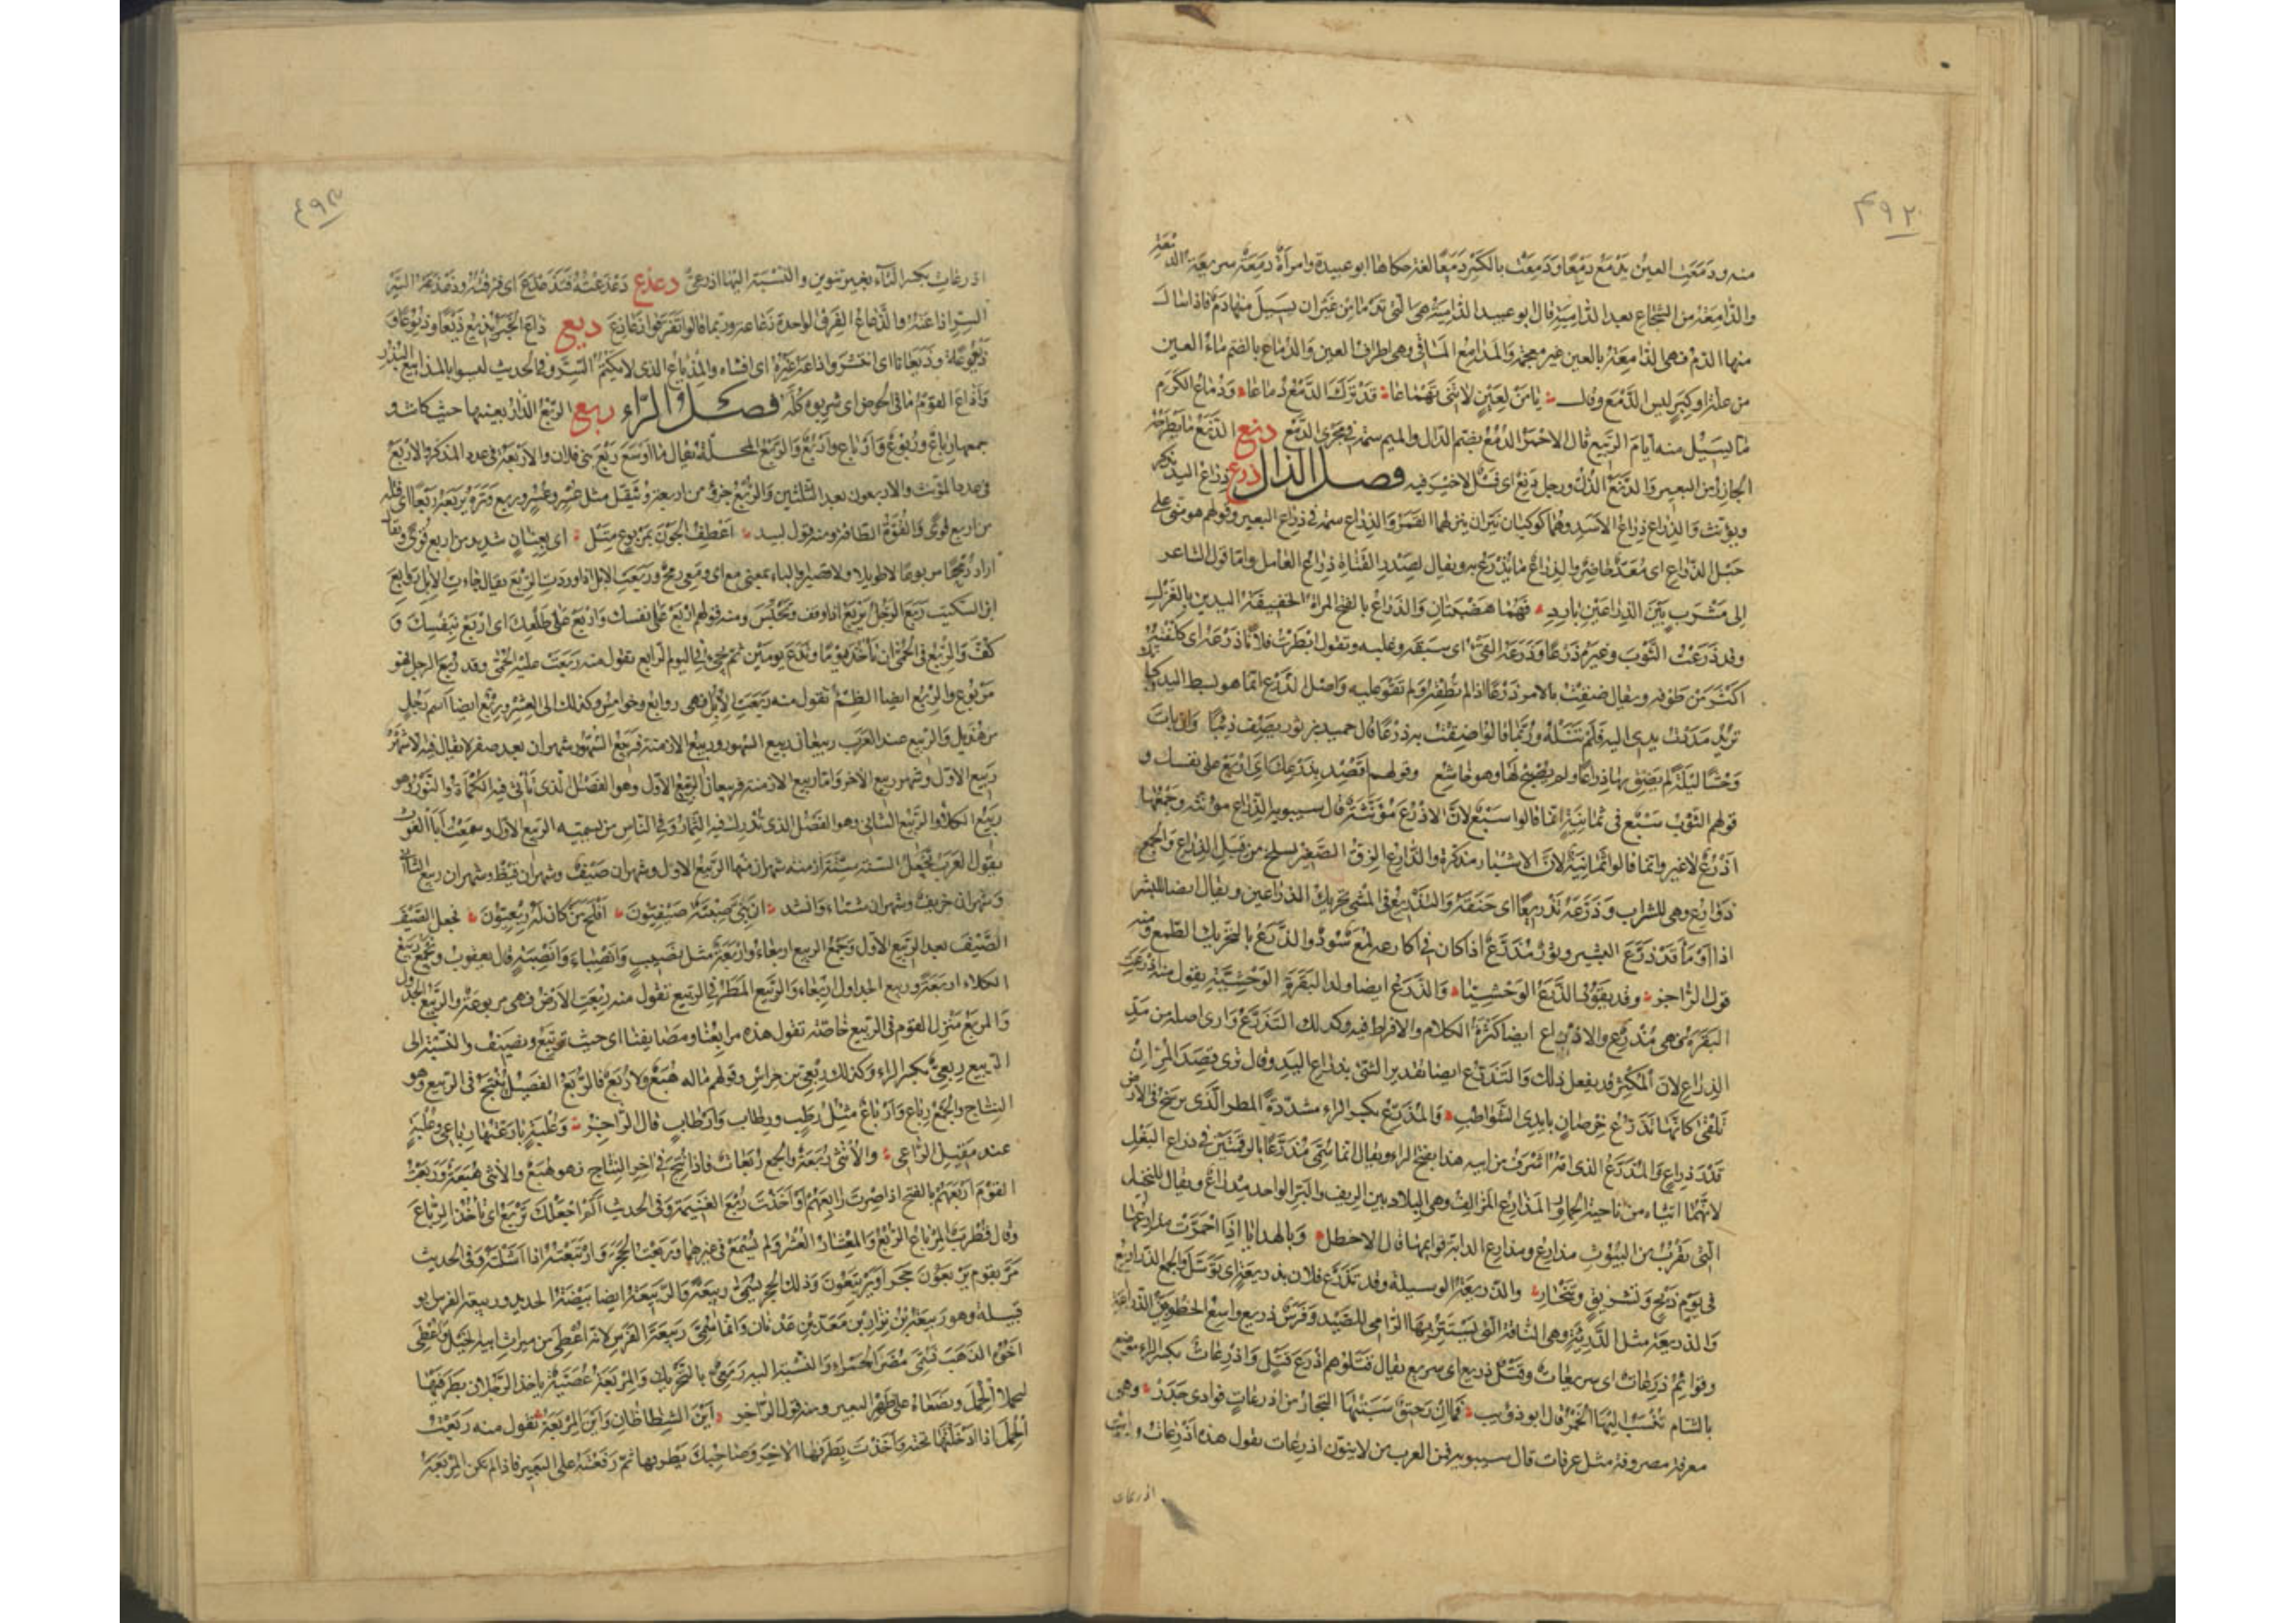 ٤٩٢
منه ودمعت العين تدمع دمعا ودمعت بالكسر دمعا لغة حكاها ابو عبيدة وامرأة دمعة سريعة الدمعة
والدامعة من الشجاج بعد الدامية قال ابو عبيد الدامية هى التى تدمى من غير ان يسيل منها دم فاذا سال
منها الدم فهى الدامعة بالعين غير معجمة والمدامع المآقى وهى اطراف العين والدماع بالضم ماء العين
من علة او كبر ليس الدمع وقال يا من لعين لا تنى تهماعا قد ترك الدمع بها دماعا ودماع الكرم
ما يسيل منه ايام الربيع قال الاحمر الدمع بضم الدال والميم سمة فى مجرى الدمع دنع الدنع ما يطرحه
الجازر من البعير والدنع الذل ورجل دنع اى فسل لا خير فيه فصل الذال ذرع ذراع اليد يذكر
ويؤنث والذراع ذراع الاسد وهما كوكبان نيران ينزلهما القمر والذراع سمة فى ذراع البعير وقولهم هو منى على
حبل الذراع اى معد حاضر والذراع ما يذرع به ويقال لصدر القناة ذراع العامل واما قول الشاعر
الى مشرب بين الذراعين بارد فهما هضبتان والذراع بالفتح المراة الخفيفة اليدين بالغزل
وقد ذرعت الثوب وغيره ذرعا وذرعه القىء اى سبقه وغلبه وتقول ابطرت فلانا ذرعه اى كلفته
اكثر من طوقه ويقال ضقت بالامر ذرعا اذا لم تطقه ولم تقو عليه واصل الذرع انما هو بسط اليد كانك
تريد مددت يدى اليه فلم تنله وربما قالوا ضقت به ذراعا قال حميد بن ثور يصف ذئبا وان بات
وحشا ليلة لم يضق بها ذراعا ولم يصبح لها وهو خاشع وقولهم اقصد بذرعك اى اربع على نفسك و
قولهم الثوب سبع فى ثمانية انما قالوا سبع لان الاذرع مؤنثة قال سيبويه الذراع مؤنثة وجمعها
اذرع لا غير وانما قالوا ثمانية لان الاشبار مذكرة والذارع الزق الصغير يسلخ من قبل الذراع والجمع
ذوارع وهى للشراب وذرعه تذريعا اى خنقه والتذريع فى المشى تحريك الذراعين ويقال ايضا للبشير
اذا اومأ قد ذرع البشير وثور مذرع اذا كان فى اكارعه لمع سود والذرع بالتحريك الطمع ومنه
قول الراجز وقد يقود الذرع الوحشيا والذرع ايضا ولد البقرة الوحشية يقول منه اذرعت
البقرة فهى مذرع والاذراع ايضا كثرة الكلام والافراط فيه وكذلك التذرع وارى اصله من مد
الذراع لان المكثر قد يفعل ذلك والتذرع ايضا تقدير الشىء بذراع اليد وقال ترى قصد المران
تلقى كانها تذرع خرصان بايدى الشواطب والمذرع بكسر الراء مشددة المطر الذى يرسخ فى الارض
قدر ذراع والمذرع الذى امه اشرف من ابيه هذا بفتح الراء ويقال انما سمى مذرعا بالرقمتين فى ذراع البغل
لانهما اتياه من ناحية الحمار والمذارع المزالف وهى البلاد بين الريف والبر الواحد مذراع ويقال للنخيل
التى تقرب من البيوت مذارع ومذارع الدابة قوائمها قال الاخطل وبالهدايا اذا احمرت مذارعها
فى يوم ذبح وتشريق وتنحار والذريعة الوسيلة وقد تذرع فلان بذريعة اى توسل والجمع الذرايع
والذريعة مثل الدريئة وهى الناقة التى يستتر بها الرامى للصيد وفرس ذريع واسع الخطو بين الذراعة
وقوائم ذرعات اى سريعات وقتل ذريع اى سريع يقال قتلوهم اذرع قتل واذرعات بكسر الراء موضع
بالشام تنسب اليها الخمر قال ابو ذؤيب فما ان رحيق سبتها التجار من اذرعات فوادى جدر وهى
معرفة مصروفة مثل عرفات قال سيبويه فمن العرب من لا ينون اذرعات يقول هذه اذرعات ورايت
اذرعات
٤٩٣
اذرعات بكسر التاء بغير تنوين والنسبة اليها اذرعى ذعذع ذعذعته فتذعذع اى فرقته وذعذعة السر
السر اذاعته والذعاع الفرق الواحدة ذعاعة وربما قالوا تفرقوا ذعاذع ذيع ذاع الخبر يذيع ذيعا وذيوعا و
ذيعوعة وذيعانا اى انتشر واذاعه غيره اى افشاه والمذياع الذى لا يكتم السر وفى الحديث ليسوا بالمذاييع البذر
واذاع القوم ما فى الحوض اى شربوه كله فصل الراء ربع الربع الدار بعينها حيث كانت و
جمعها رباع وربوع وارباع واربع والربع المحلة يقال ما اوسع ربع بنى فلان والاربعة فى عدد المذكر والاربع
فى عدد المؤنث والاربعون بعد الثلثين والربع جزء من اربعة ويثقل مثل عسر وعسر وربع وتره يربعه ربعا اى فتله
من اربع قوى والقوة الطاقة ومنه قول لبيد اعطف الجون بمربوع متل اى بعنان شديد من اربع قوى ويقال
اراد رمحا مربوعا لا طويلا ولا قصيرا والباء بمعنى مع اى ومعى رمح وربعت الابل اذا وردت الربع يقال جاءت الابل روابع
ابن السكيت ربع الرجل يربع اذا وقف وتحبس ومنه قولهم اربع على نفسك واربع على ظلعك اى ارفق بنفسك و
كف والربع فى الحمى ان تأخذ يوما وتدع يومين ثم تجىء فى اليوم الرابع تقول منه ربعت عليه الحمى وقد ربع الرجل فهو
مربوع والربع ايضا الظمء تقول منه ربعت الابل فهى روابع وخوامس وكذلك الى العشر وربع ايضا اسم رجل
من هذيل والربيع عند العرب ربيعان ربيع الشهور وربيع الازمنة فربيع الشهور شهران بعد صفر لا يقال فيه الا شهر
ربيع الاول وشهر ربيع الآخر واما ربيع الازمنة فربيعان الربيع الاول وهو الفصل الذى تأتى فيه الكمأة والنور وهو
ربيع الكلاء والربيع الثانى وهو الفصل الذى تدرك فيه الثمار وفى الناس من يسميه الربيع الاول وسمعت ابا الغوث
يقول العرب تجعل السنة ستة ازمنة شهران منها الربيع الاول وشهران صيف وشهران قيظ وشهران ربيع الثانى
وشهران خريف وشهران شتاء وانشد ان بنى صبية صيفيون افلح من كانت له ربعيون فجعل الصيف
الصيف بعد الربيع الاول وجمع الربيع اربعاء واربعة مثل نصيب وانصباء وانصبة قال يعقوب وتجمع ربيع
الكلاء اربعة وربيع الجداول اربعاء والربيع المطر فى الربيع تقول منه ربعت الارض فهى مربوعة والربيع الجدول
والمربع منزل القوم فى الربيع خاصة تقول هذه مرابعنا ومصايفنا اى حيث نرتبع ونصيف والنسبة الى
الربيع ربعى بكسر الراء وكذلك ربعى بن حراش وقولهم ما له هبع ولا ربع فالربع الفصيل ينتج فى الربيع وهو
النتاج والجمع رباع وارباع مثل رطب ورطاب وارطاب قال الراجز وعلبة نازعتها رباعى وعلبة
عند مقيل الراعى والانثى ربعة والجمع ربعات فاذا نتج فى آخر النتاج فهو هبع والانثى هبعة وربعت
القوم اربعهم بالفتح اذا صرت رابعهم او اخذت ربع الغنيمة وفى الحديث الم اجعلك تربع اى تأخذ المرباع
وقال قطرب المرباع الربع والمعشار العشر ولم يسمع فى غيرهما وربعت الحجر وارتبعته اذا اشلته وفى الحديث
مر بقوم يربعون حجرا او يرتبعون وذلك الحجر يسمى ربيعة والربيعة ايضا بيضة الحديد وربيعة الفرس ابو
قبيلة وهو ربيعة بن نزار بن معد بن عدنان وانما سمى ربيعة الفرس لانه اعطى من ميراث ابيه الخيل واعطى
اخوه الذهب فسمى مضر الحمراء والنسبة اليه ربعى بالتحريك والمربعة عصية ياخذ الرجلان بطرفيها
ليحملا الحمل ويضعاه على ظهر البعير ومنه قول الراجز اين الشظاظان واين المربعة تقول منه ربعت
الحمل اذا ادخلتها تحته واخذت بطرفها الآخر وصاحبك بطرفها ثم رفعته على البعير فاذا لم تكن المربعة